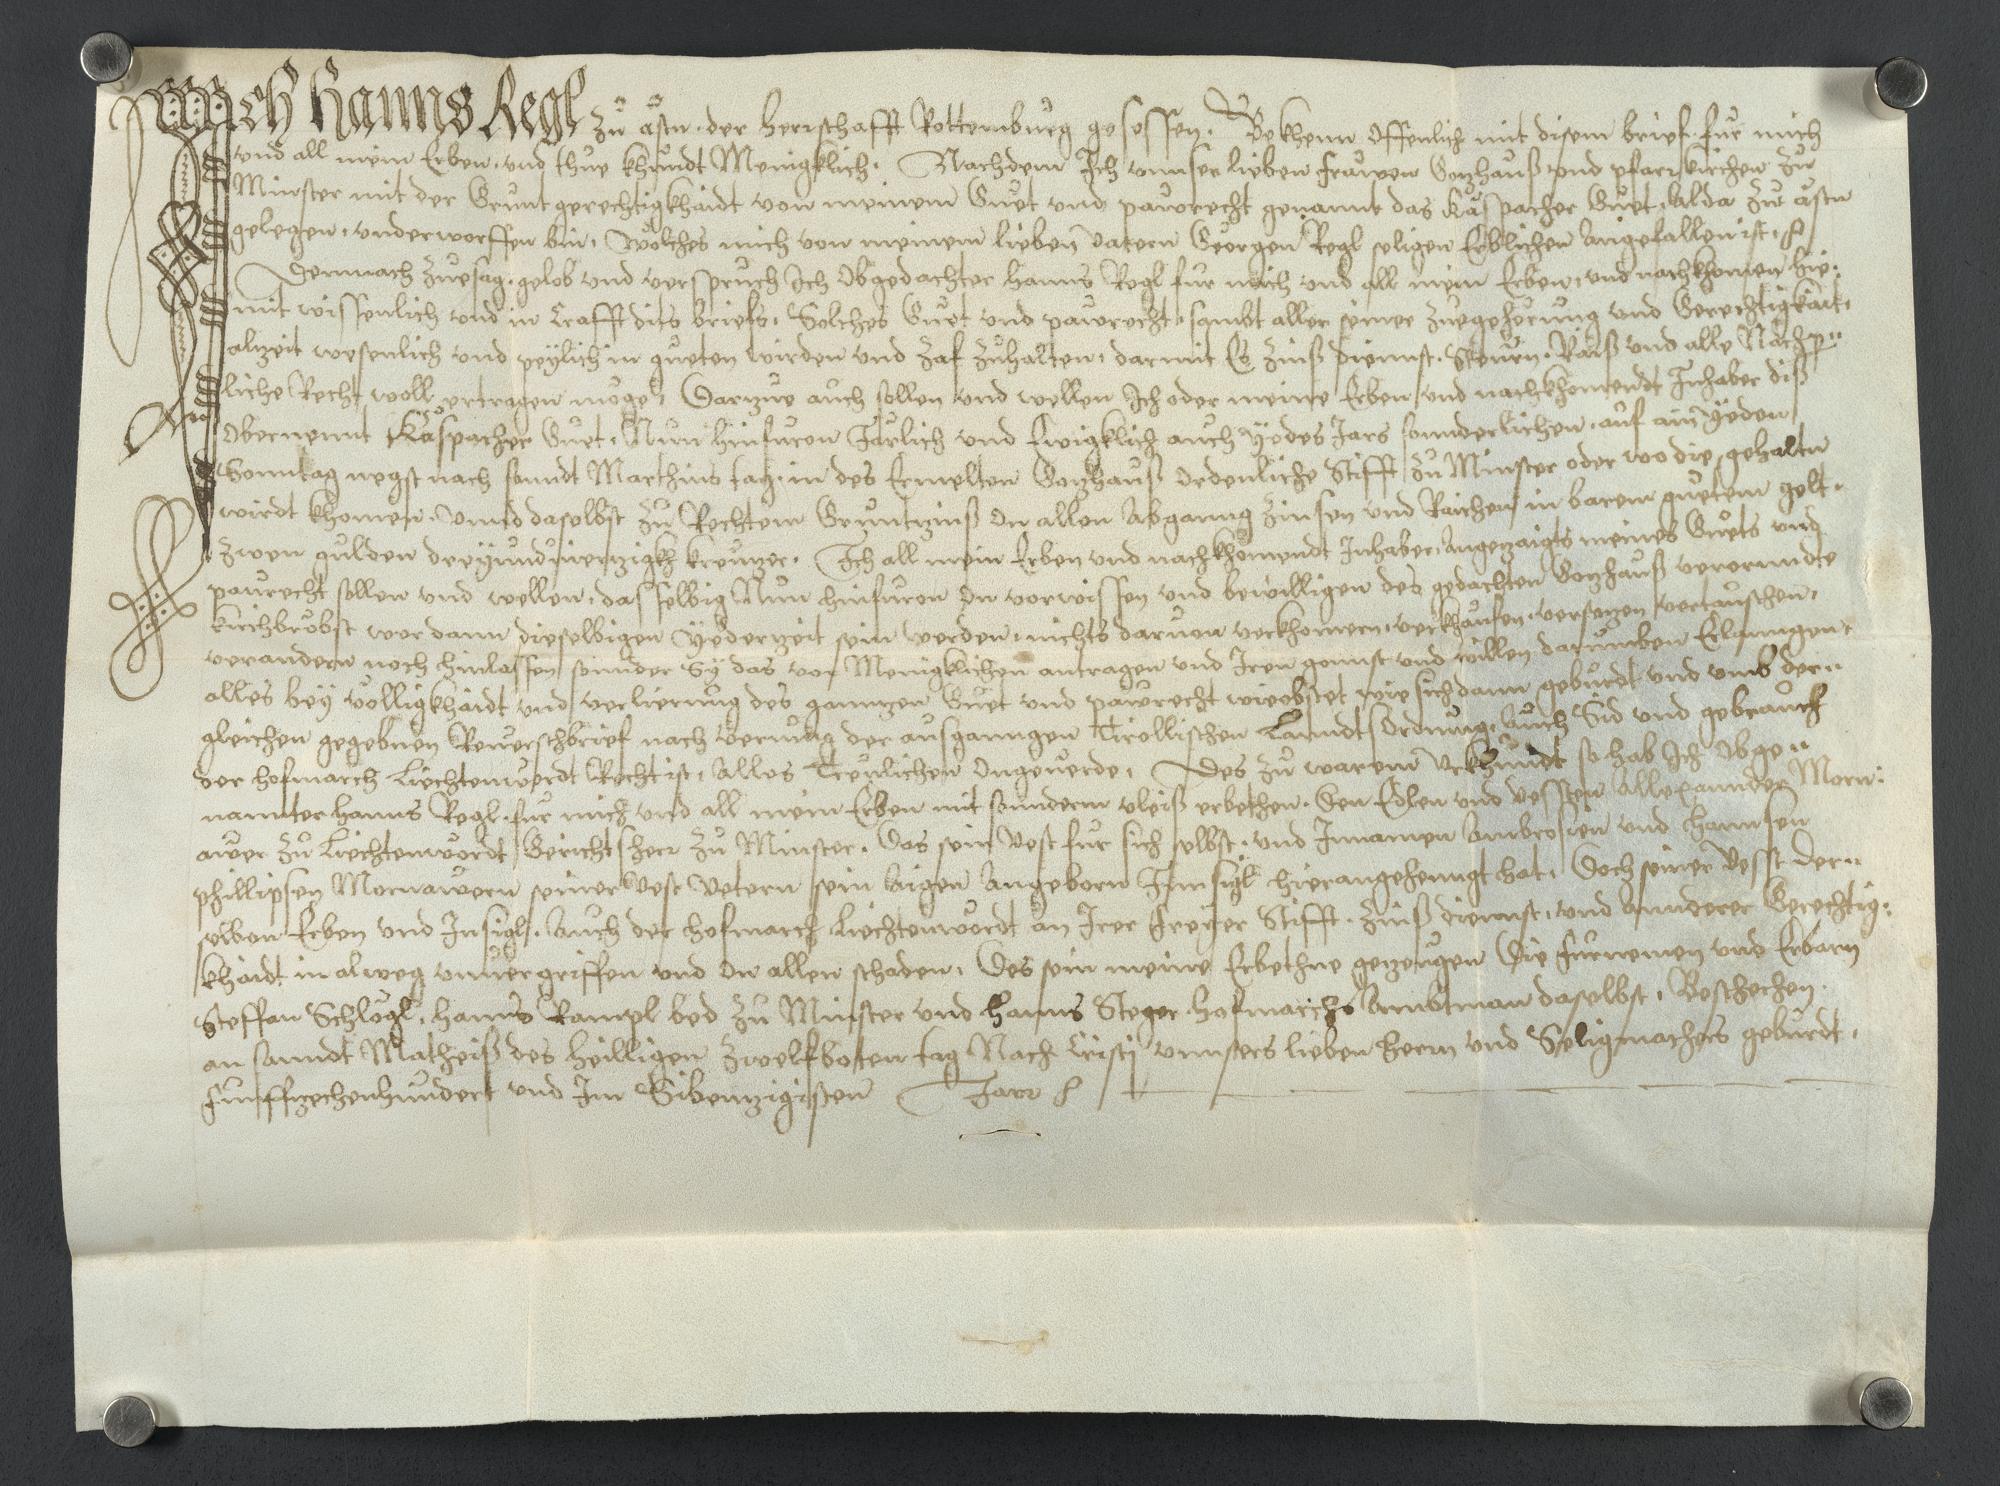 Ich Hanns Regl zu åstn der herrschafft Rottemburg gesessen. Bekhenn offenlich mit disem brief fur mich
vnd all mein Erben, vnd thue khundt Menigklich. Nachdem Ich vnnser lieben frawen Gotzhauß vnd pfarrkirchen zu
Minster mit der Grunt gerechtigkhaidt von meinem Guet vnd pawrecht genannt das Kåspacher Guet, Alda zu åstn
gelegen, vnderworffen bin, wölches mich von meinem lieben vatern Georgen Regl seligen Erblichen Angefallen ist,
Demnach zuesag, gelob vnd versprich Ich Obgedachter Hanns Regl fur mich vnd all mein Erben, vnd nachkhomen hie-
mit wissenlich vnd in Crafft dits briefs, Solches Guet vnd pawrecht, sambt aller seiner zuegehorung vnd Gerechtigkait,
alzeit wesenlich vnd peylich in gueten wirden vnd zuhalten, darmit Es zinß diennst, Steurn, Raiß vnd alle
liche Recht woll ertragen möge, Darzue auch sollen vnd wellen Ich oder meine Erben vnd nachkhomendt Inhaber diß
Obernennt Kåspacher Guet, Nun hinfuron Järlich vnd Ewigklich auch Yedes Jars sonnderlichen, auf ain Yeden
Sonntag negst nach sanndt Marthins tag, in des Ermelten Gotzhauß Ordenliche Stifft zu Minster oder wo die gehaltn
wirdt khomen, vnnd daselbst zu Rechtem Gruntzinß On allen Abganng zinsen vnd Raichen in barem guetem gelt,
zwen gulden dreyundvierzigkh kreutzer. Ich all mein Erben vnd nachkhomendt Inhaber, Angezaigts meines Guets vnd
paurecht sollen vnd wellen, dasselbig Nun hinfuron On vorwissen vnd bewilligen des gedachten Gotzhauß verornndte
kirchbröbst wer dann dieselbigen Yederzeit sein werden, nichts daruon verkhomern, verkhaufen, versetzen, vertauschen,
verandern noch hinlassen sonnder Sy das vor Menigklichen antragen vnd Iren gonnst vnd willen darumben Erlanngen,
alles bey völligkhaidt vnd verlierung des ganntzen Guet vnd pawrecht wieobstet, wie sich dann geburdt vnd vmb der-
gleichen gegebnen Reuerschbrief nach vermug der ausganngen Tirollischen Lanndtsordnung, Auch Sid vnd gebrauch
der hofmarch Liechtenwerdt Recht ist, Alles Treulichen Ongeuerde, Des zu warem vrkhundt so hab Ich Obge-
nannter Hanns Regl, fur mich vnd all mein Erben mit sonnderm vleiß erbethen, Den Edlen vnd vessten Allexannder Morn-
awer zu Liechtenwördt Gerichtsherr zu Minster, Das sein vest fur sich selbst, vnd Innamen Ambrosien vnd Hannsen
phillipsen Mornawern seiner vest vetern sein Aigen Angeborn Innsigl hierangehenngt hat, Doch seiner vesst der-
selben Erben vnd Insigl, Auch der hofmarch Liechtenwördt an Irer freyer Stifft, zinß diennst, vnd Annderer Gerechtig-
khaidt in alweg vnuergriffen vnd On allen schaden, Des sein meine Erbethne gezeugen Die furnemen vnd Erbarn
Steffan Schlögl, Hanns Rampl bed zu Minster vnd Hanns Steger Hofmarchs Ambtman daselbst, Beschechen
an sanndt Matheiß des Heilligen zwelfboten tag Nach Cristj vnnsers lieben Herrn vnd Seligmachers geburdt,
funffzechenhundert vnd Im Sibenzigisten Jare